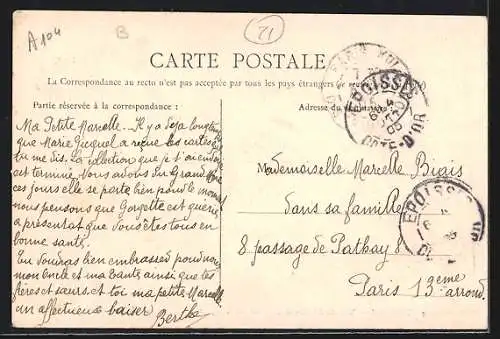 A 104
B
21
CARTE POSTALE
La Correspondance au recto n'est pas acceptée par tous les pays étrangers
Partie réservée à la correspondance :
Adresse du
EPOISSES
CÔTE-D'OR
Ma Petite Marcelle. Il y a deja longtemps
que Marie a reçue les cartes
tu me dis. La collection que je t'ai
est terminé. Nous avons eu Grand Mère
ces jours elle se porte bien pour le moment
nous pensons que Georgette est guérie
a présentat que vous êtes tous en
bonne santé.
Tu voudras bien embrassed pour nous
mon Oncle et ma tante ainsi que tes
frères et sœurs et toi ma petite Marcelle
un affectueux baiser
Berthe
Mademoiselle Marcelle Biais
dans sa famille
8 passage de Pathay 8
Paris 13eme arrond.
EPOISSES